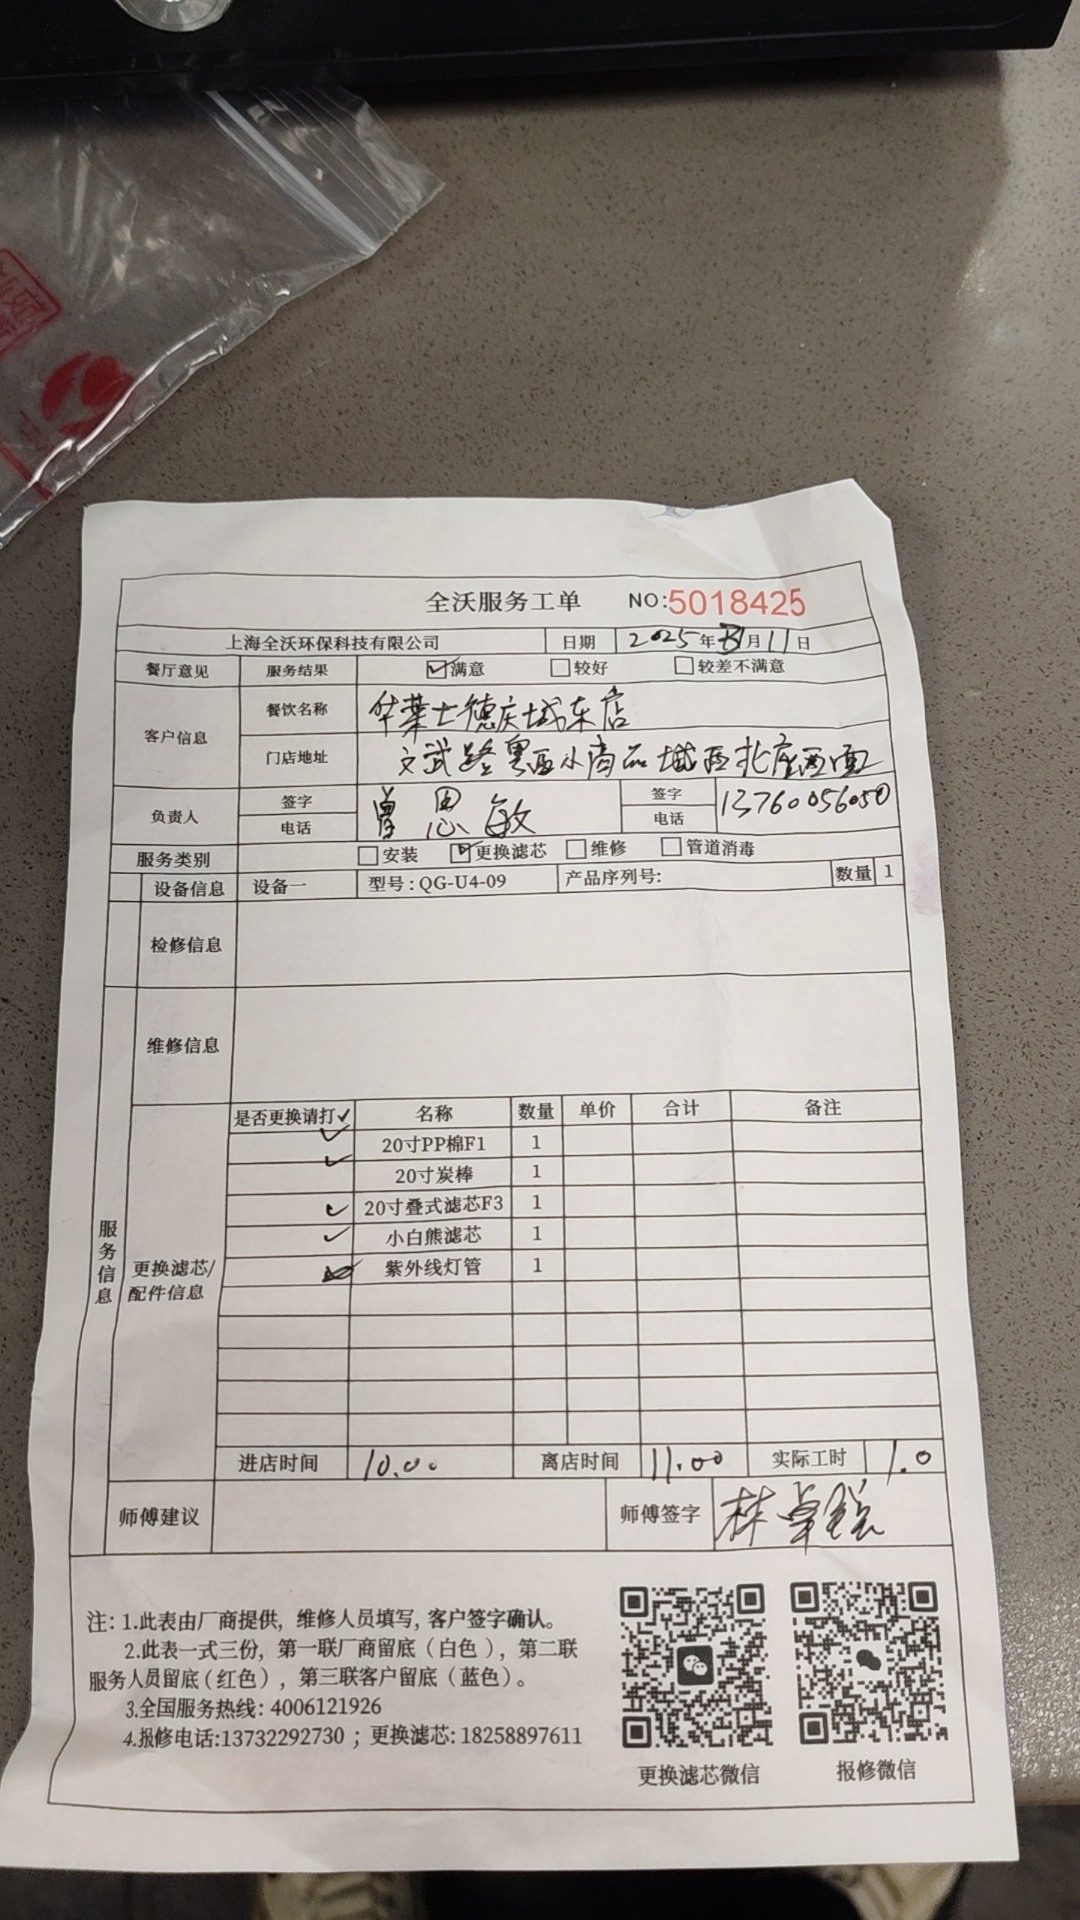 全沃服务工单 NO:5018425
上海全沃环保科技有限公司 日期 2025年 月11日
餐厅意见 服务结果 ☑满意 □较好 □较差不满意
客户信息 餐饮名称 华莱士德庆城东店
门店地址 文武路粤西小商品城 北座西面
负责人 签字 电话 曾思敏 签字 电话 13760056050
服务类别 □安装 ☑更换滤芯 □维修 □管道消毒
设备信息 设备一 型号:QG-U4-09 产品序列号: 数量 1
检修信息
维修信息
服务信息
更换滤芯/配件信息
是否更换请打✓ 名称 数量 单价 合计 备注
✓ 20寸PP棉F1 1
✓ 20寸炭棒 1
✓ 20寸叠式滤芯F3 1
✓ 小白熊滤芯 1
紫外线灯管 1
进店时间 10.00 离店时间 11.00 实际工时 1.0
师傅建议 师傅签字 林卓
注: 1.此表由厂商提供, 维修人员填写, 客户签字确认。
2.此表一式三份, 第一联厂商留底 (白色), 第二联
服务人员留底 (红色), 第三联客户留底 (蓝色)。
3.全国服务热线: 4006121926
4.报修电话:13732292730 ; 更换滤芯: 18258897611
更换滤芯微信 报修微信